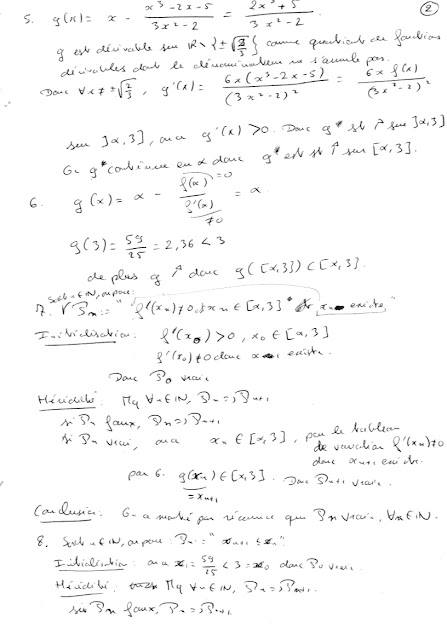 ②
5. g(x) = x - (x³-2x-5)/(3x²-2) = (2x³+5)/(3x²-2)
g est dérivable sur ℝ\{±√(2/3)} comme quotient de fonctions
dérivables dont le dénominateur ne s'annule pas.
Donc ∀x≠±√(2/3), g'(x) = 6x(x³-2x-5)/(3x²-2)² = 6x f(x)/(3x²-2)²
sur ]α,3], on a g'(x) > 0. Donc g st ↗ sur ]α,3]
G continue en α donc g est st ↗ sur [α,3].
6. g(α) = α - f(α)/f'(α) = α.
=0
≠0
g(3) = 59/25 = 2,36 < 3
de plus g ↗ donc g([α,3]) ⊂ [α,3].
Soit n∈ℕ, on pose:
7. Pn := "f'(xn)≠0 et xn ∈ [α,3] existe"
Initialisation: f'(x0) > 0, x0 ∈ [α,3]
f'(x0) ≠ 0 donc x1 existe.
Donc P0 vraie
Hérédité: Mq ∀n∈ℕ, Pn ⇒ Pn+1
si Pn faux, Pn ⇒ Pn+1
si Pn vrai, on a xn ∈ [α,3], par le tableau
de variation f'(xn)≠0
donc xn+1 existe.
par 6. g(xn) ∈ [α,3]. Donc Pn+1 vraie.
= xn+1
Conclusion: On a montré par récurrence que Pn vraie, ∀n∈ℕ.
8. Soit n∈ℕ, on pose: Pn := "xn+1 ≤ xn"
Initialisation: on a x1 = 59/25 < 3 = x0 donc P0 vraie.
Hérédité: Mq ∀n∈ℕ, Pn ⇒ Pn+1.
si Pn faux, Pn ⇒ Pn+1